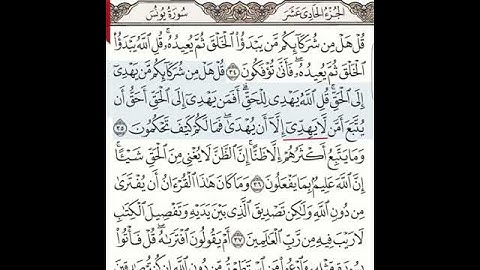 الجزء الحادي عشر
سورة يونس
قُلْ هَلْ مِن شُرَكَآئِكُم مَّن يَبْدَؤُا۟ ٱلْخَلْقَ ثُمَّ يُعِيدُهُۥ ۚ قُلِ ٱللَّهُ يَبْدَؤُا۟
ٱلْخَلْقَ ثُمَّ يُعِيدُهُۥ ۖ فَأَنَّىٰ تُؤْفَكُونَ ٣٤ قُلْ هَلْ مِن شُرَكَآئِكُم مَّن يَهْدِىٓ
إِلَى ٱلْحَقِّ ۚ قُلِ ٱللَّهُ يَهْدِى لِلْحَقِّ ۗ أَفَمَن يَهْدِىٓ إِلَى ٱلْحَقِّ أَحَقُّ أَن
يُتَّبَعَ أَمَّن لَّا يَهِدِّىٓ إِلَّآ أَن يُهْدَىٰ ۖ فَمَا لَكُمْ كَيْفَ تَحْكُمُونَ ٣٥
وَمَا يَتَّبِعُ أَكْثَرُهُمْ إِلَّا ظَنًّا ۚ إِنَّ ٱلظَّنَّ لَا يُغْنِى مِنَ ٱلْحَقِّ شَيْـًٔا ۚ
إِنَّ ٱللَّهَ عَلِيمٌۢ بِمَا يَفْعَلُونَ ٣٦ وَمَا كَانَ هَٰذَا ٱلْقُرْءَانُ أَن يُفْتَرَىٰ
مِن دُونِ ٱللَّهِ وَلَٰكِن تَصْدِيقَ ٱلَّذِى بَيْنَ يَدَيْهِ وَتَفْصِيلَ ٱلْكِتَٰبِ
لَا رَيْبَ فِيهِ مِن رَّبِّ ٱلْعَٰلَمِينَ ٣٧ أَمْ يَقُولُونَ ٱفْتَرَىٰهُ ۖ قُلْ فَأْتُوا۟
بِسُورَةٍ مِّثْلِهِۦ وَٱدْعُوا۟ مَنِ ٱسْتَطَعْتُم مِّن دُونِ ٱللَّهِ إِن كُنتُمْ صَٰدِقِينَ